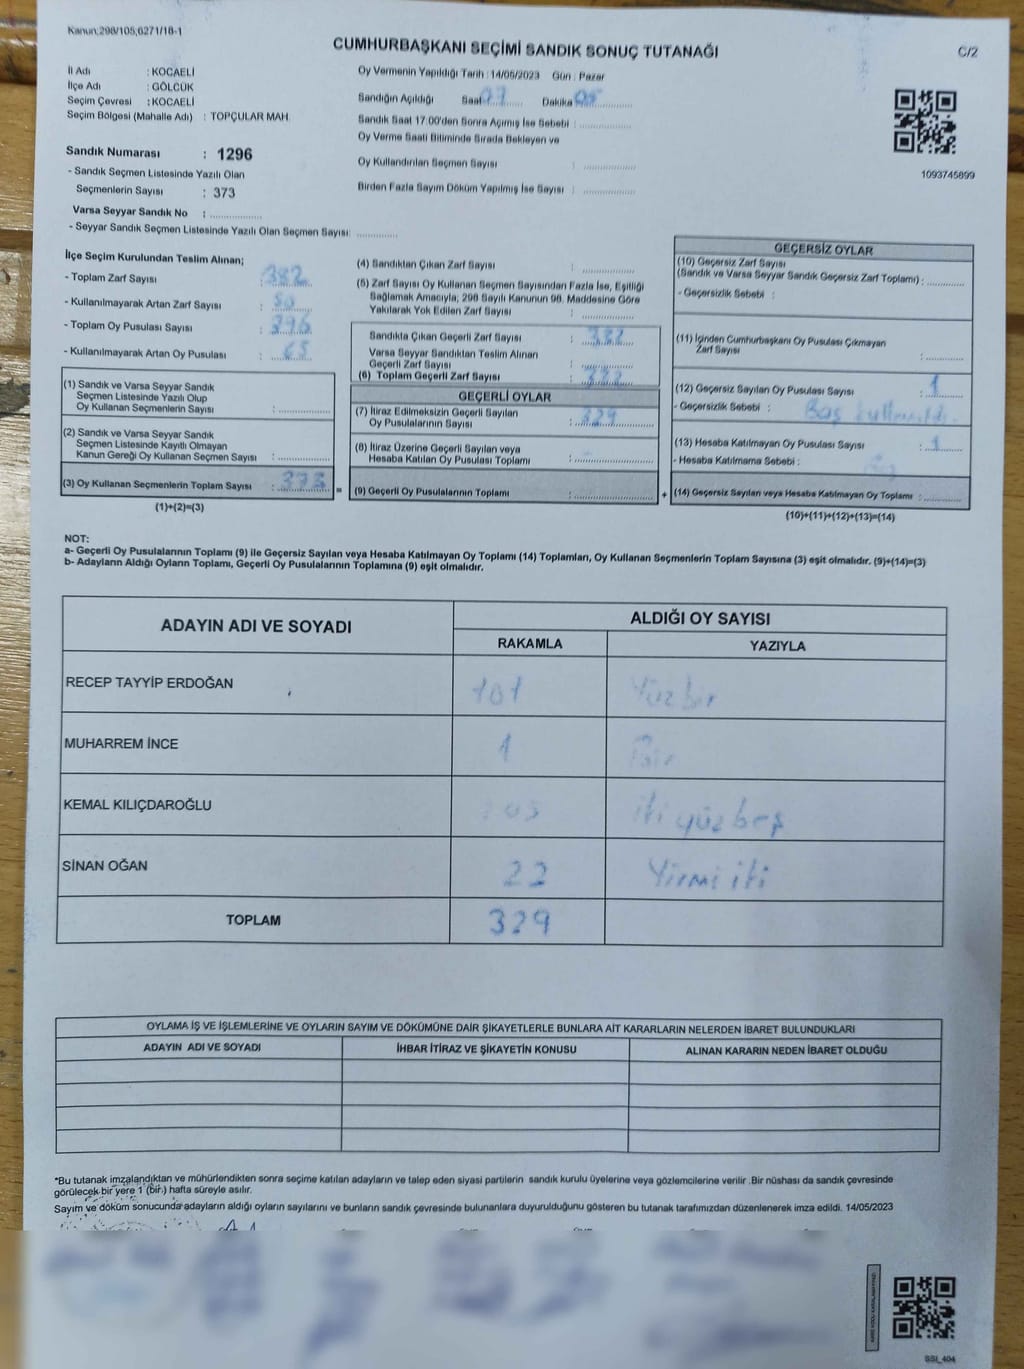 Kanun;298/105,6271/18-1
CUMHURBAŞKANI SEÇİMİ SANDIK SONUÇ TUTANAĞI
C/2
İl Adı : KOCAELİ
İlçe Adı : GÖLCÜK
Seçim Çevresi : KOCAELİ
Seçim Bölgesi (Mahalle Adı) : TOPÇULAR MAH.
Sandık Numarası : 1296
- Sandık Seçmen Listesinde Yazılı Olan
Seçmenlerin Sayısı : 373
Varsa Seyyar Sandık No : ..............
- Seyyar Sandık Seçmen Listesinde Yazılı Olan Seçmen Sayısı: ............
Oy Vermenin Yapıldığı Tarih : 14/05/2023 Gün : Pazar
Sandığın Açıldığı Saat Dakika
Sandık Saat 17.00'den Sonra Açımış İse Sebebi : ..............
Oy Verme Saati Bitiminde Sırada Bekleyen ve
Oy Kullandırılan Seçmen Sayısı : ..............
Birden Fazla Sayım Döküm Yapılmış İse Sayısı : ..............
1093745899
İlçe Seçim Kurulundan Teslim Alınan;
- Toplam Zarf Sayısı : 382
- Kullanılmayarak Artan Zarf Sayısı : 50
- Toplam Oy Pusulası Sayısı : 396
- Kullanılmayarak Artan Oy Pusulası : 65
(1) Sandık ve Varsa Seyyar Sandık
Seçmen Listesinde Yazılı Olup
Oy Kullanan Seçmenlerin Sayısı : ..............
(2) Sandık ve Varsa Seyyar Sandık
Seçmen Listesinde Kayıtlı Olmayan
Kanun Gereği Oy Kullanan Seçmen Sayısı : ..............
(3) Oy Kullanan Seçmenlerin Toplam Sayısı :
(1)+(2)=(3)
=
(4) Sandıktan Çıkan Zarf Sayısı : ..............
(5) Zarf Sayısı Oy Kullanan Seçmen Sayısından Fazla İse, Eşitliği
Sağlamak Amacıyla; 298 Sayılı Kanunun 98. Maddesine Göre
Yakılarak Yok Edilen Zarf Sayısı : ..............
Sandıkta Çıkan Geçerli Zarf Sayısı :
Varsa Seyyar Sandıktan Teslim Alınan
Geçerli Zarf Sayısı : ..............
(6) Toplam Geçerli Zarf Sayısı :
GEÇERLİ OYLAR
(7) İtiraz Edilmeksizin Geçerli Sayılan
Oy Pusulalarının Sayısı : 329
(8) İtiraz Üzerine Geçerli Sayılan veya
Hesaba Katılan Oy Pusulası Toplamı : ..............
(9) Geçerli Oy Pusulalarının Toplamı : ..............
+
GEÇERSİZ OYLAR
(10) Geçersiz Zarf Sayısı
(Sandık ve Varsa Seyyar Sandık Geçersiz Zarf Toplamı) : ..............
- Geçersizlik Sebebi :
(11) İçinden Cumhurbaşkanı Oy Pusulası Çıkmayan
Zarf Sayısı : ..............
(12) Geçersiz Sayılan Oy Pusulası Sayısı : 1
- Geçersizlik Sebebi : Boş kullanıldı.
(13) Hesaba Katılmayan Oy Pusulası Sayısı : 1
- Hesaba Katılmama Sebebi :
(14) Geçersiz Sayılan veya Hesaba Katılmayan Oy Toplamı : ..............
(10)+(11)+(12)+(13)=(14)
NOT:
a- Geçerli Oy Pusulalarının Toplamı (9) ile Geçersiz Sayılan veya Hesaba Katılmayan Oy Toplamı (14) Toplamları, Oy Kullanan Seçmenlerin Toplam Sayısına (3) eşit olmalıdır. (9)+(14)=(3)
b- Adayların Aldığı Oyların Toplamı, Geçerli Oy Pusulalarının Toplamına (9) eşit olmalıdır.
ADAYIN ADI VE SOYADI
ALDIĞI OY SAYISI
RAKAMLA YAZIYLA
RECEP TAYYİP ERDOĞAN 101 Yüz bir
MUHARREM İNCE 1 Bir
KEMAL KILIÇDAROĞLU 205 iki yüz beş
SİNAN OĞAN 22 Yirmi iki
TOPLAM 329
OYLAMA İŞ VE İŞLEMLERİNE VE OYLARIN SAYIM VE DÖKÜMÜNE DAİR ŞİKAYETLERLE BUNLARA AİT KARARLARIN NELERDEN İBARET BULUNDUKLARI
ADAYIN ADI VE SOYADI İHBAR İTİRAZ VE ŞİKAYETİN KONUSU ALINAN KARARIN NEDEN İBARET OLDUĞU
*Bu tutanak imzalandıktan ve mühürlendikten sonra seçime katılan adayların ve talep eden siyasi partilerin sandık kurulu üyelerine veya gözlemcilerine verilir .Bir nüshası da sandık çevresinde
görülecek bir yere 1 (bir.) hafta süreyle asılır.
Sayım ve döküm sonucunda adayların aldığı oyların sayılarını ve bunların sandık çevresinde bulunanlara duyurulduğunu gösteren bu tutanak tarafımızdan düzenlenerek imza edildi. 14/05/2023
SSI_404